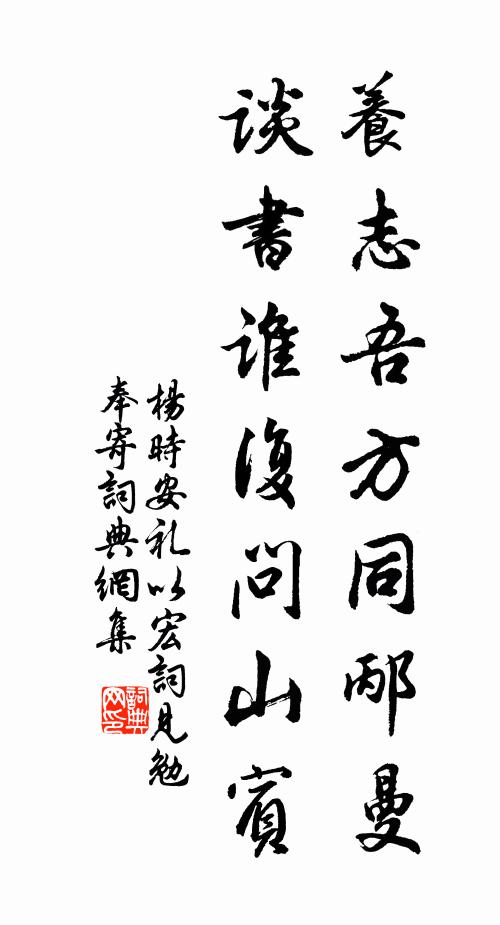 養志吾方同邴曼
談書誰復問山賓
楊時安礼以宏詞見勉
奉寄詞典網集
詞典网印